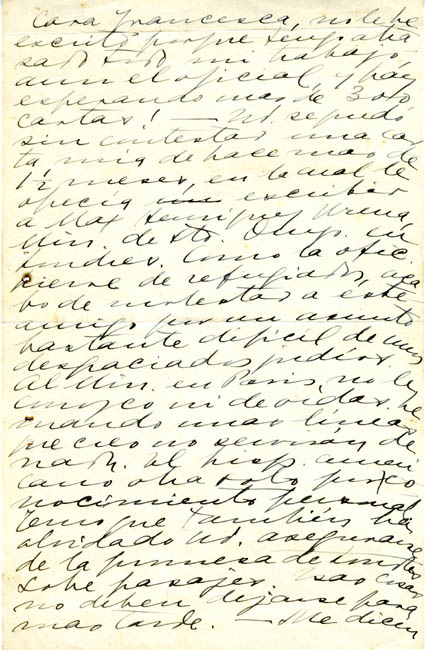 Cara Francesca, no le he
escrito porque tengo atra
sado todo mi trabajo,
aun el oficial, y hay
esperando mas de 300
cartas! — Ud. se quedó
sin contestar una car
ta mia de hace mas de
1½ meses, en la cual le
ofrecia escribir
a Max Henriquez Ureña,
Min. de Sto. Dmgo. en
Londres. Como la ofic.
de refugiados aca
bo de molestar a este
amigo por un asunto
bastante dificil de unos
desgraciados judios.
Al Min. en Paris, no le
conozco ni de vidas. Le
mando unas lineas
que creo no serviran de
nada. El hisp. ameri
cano obra solo por co
nocimiento personal
Temo que tambien ha
olvidado Ud. asegurarse
de la promesa de
sobre pasajes. Esas cosas
no deben dejarse para
mas tarde. — Me dicen